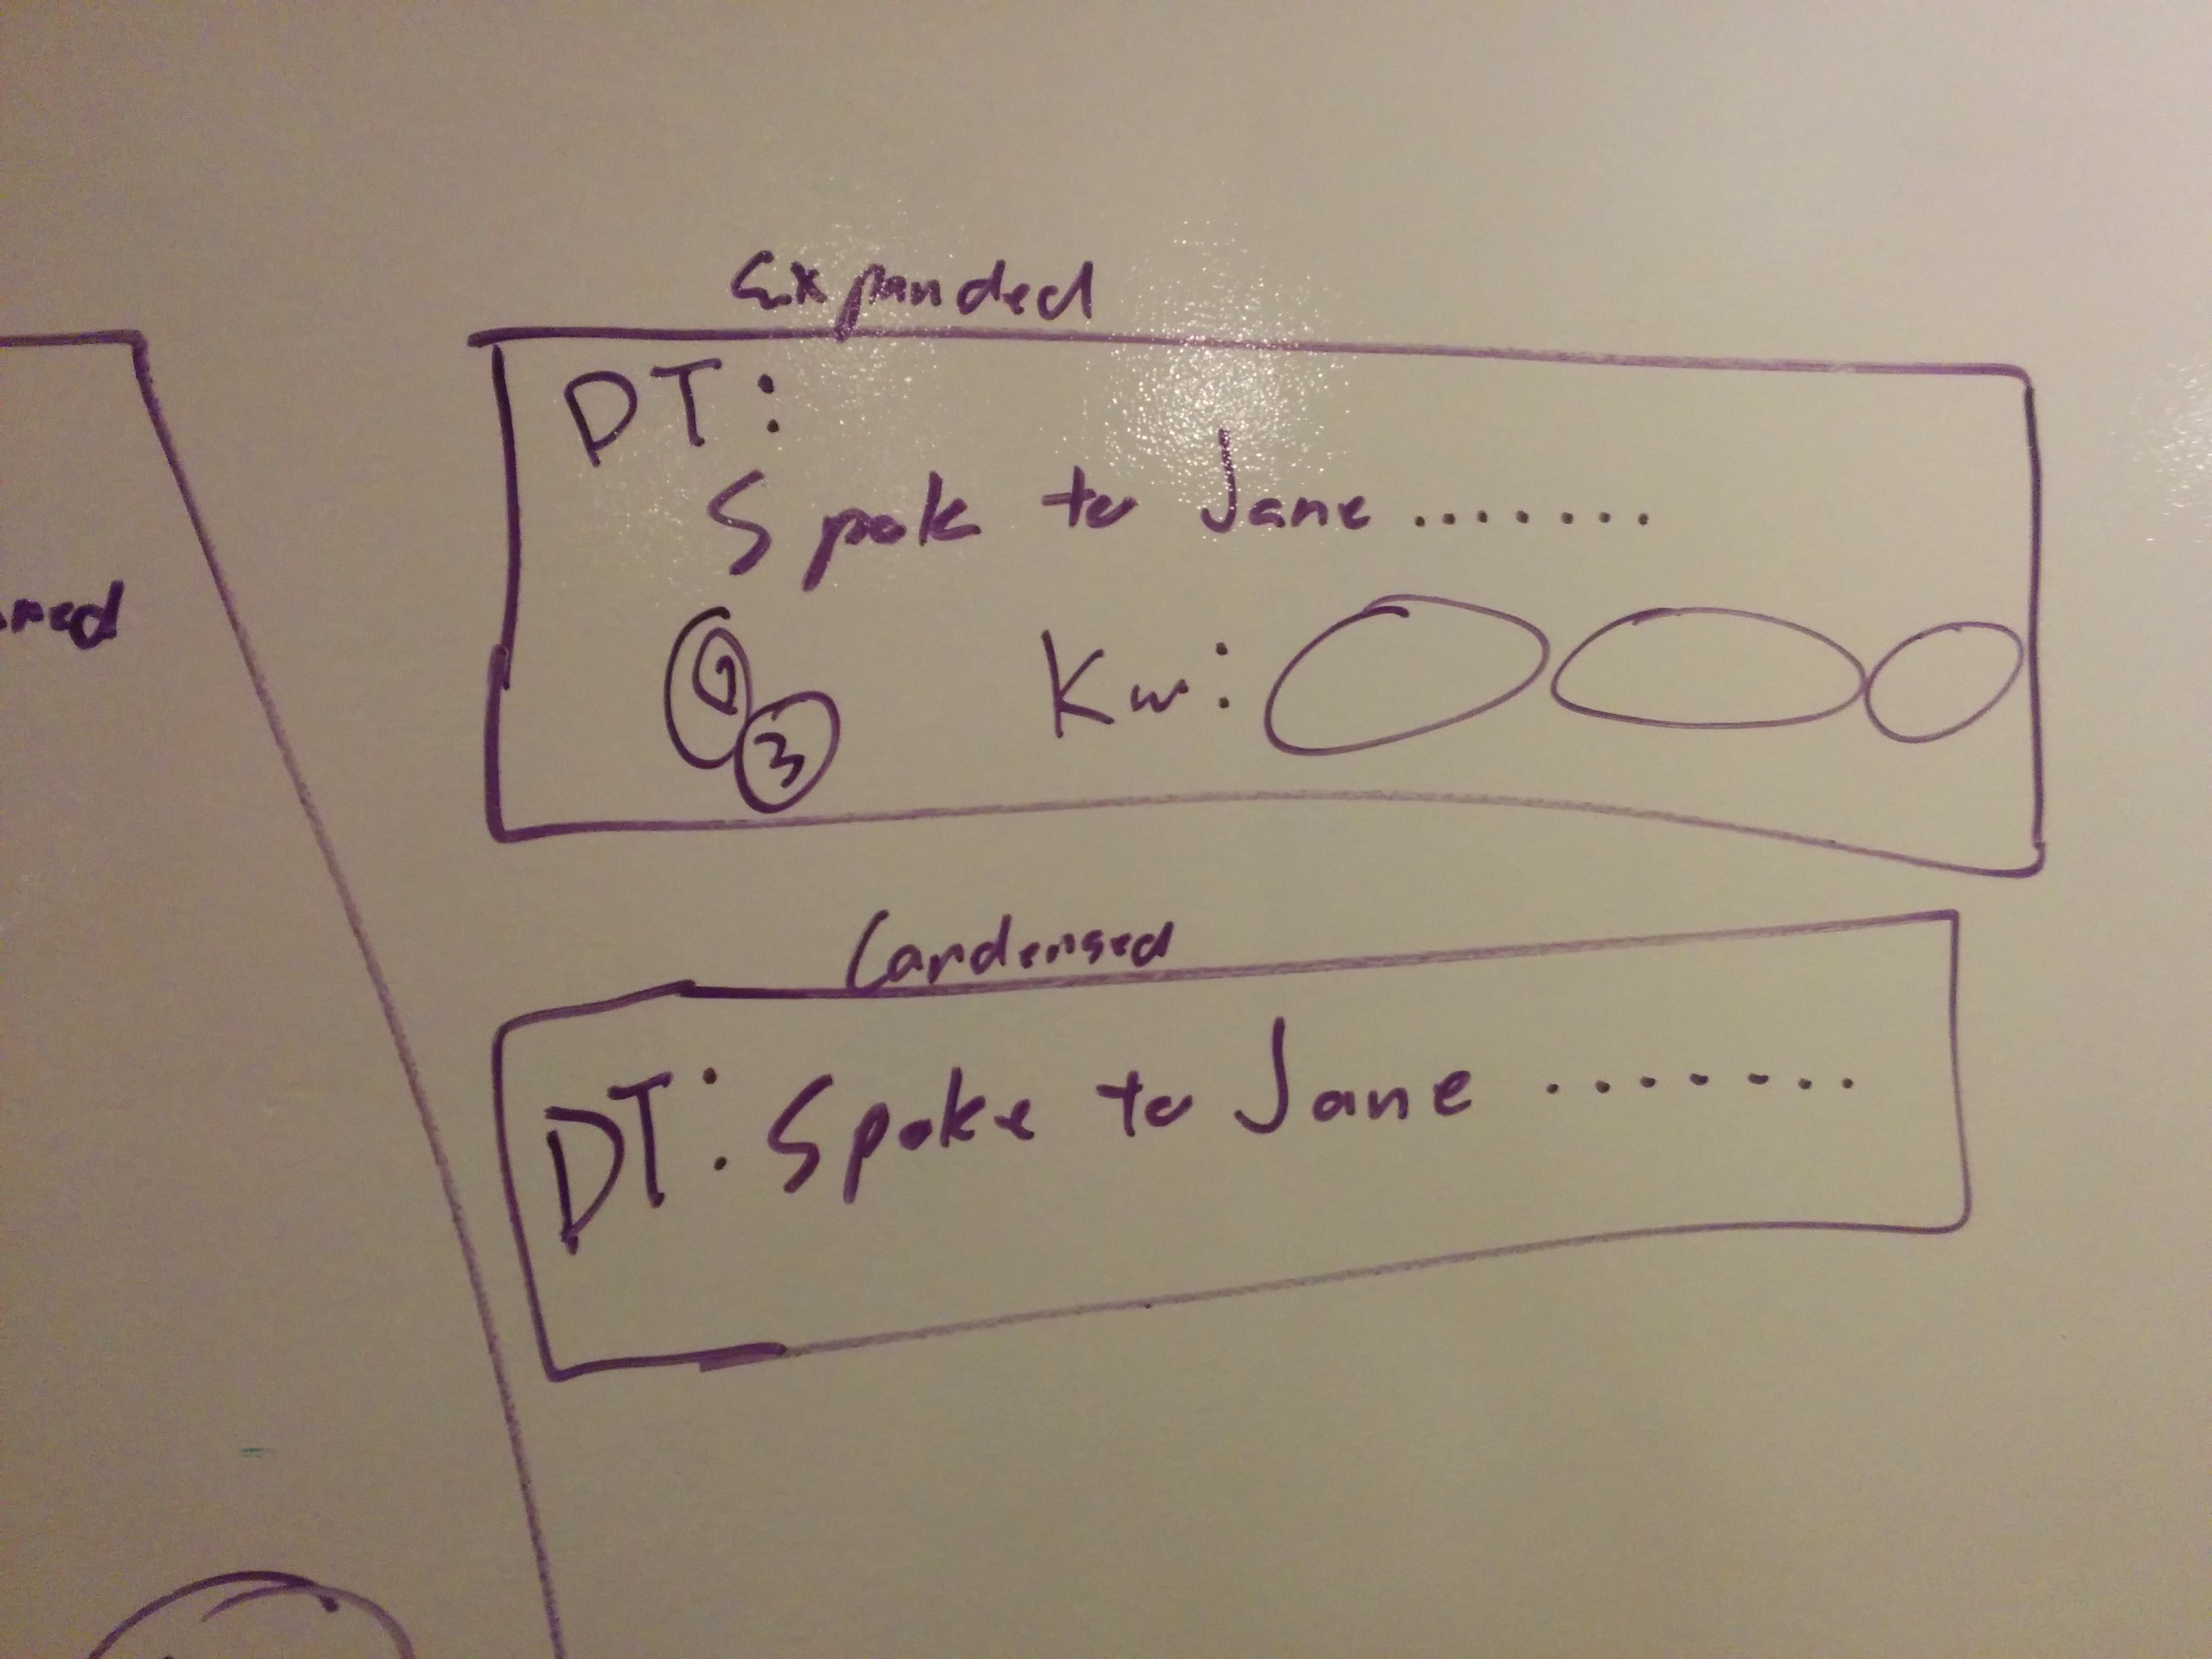 Expanded
DT:
Spok to Jane .......
3 Kw:
Condensed
DT: Spoke to Jane .......